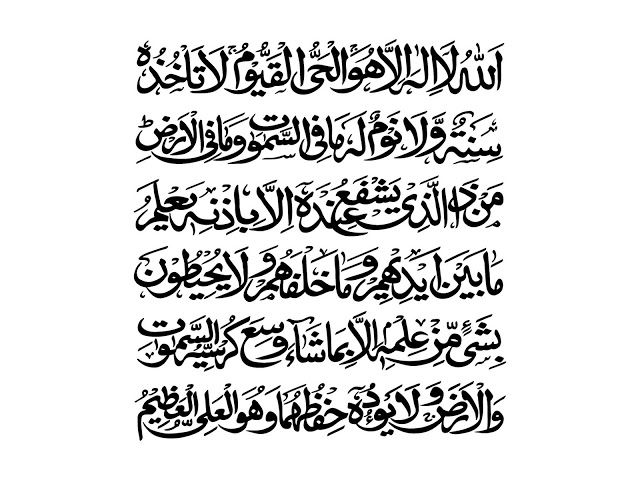 اَللّٰهُ لَا اِلٰهَ اِلَّا هُوَ الْحَىُّ الْقَيُّوْمُ لَا تَاْخُذُهٗ
سِنَةٌ وَّلَا نَوْمٌ لَهٗ مَا فِى السَّمٰوٰتِ وَمَا فِى الْاَرْضِ
مَنْ ذَا الَّذِىْ يَشْفَعُ عِنْدَهٗ اِلَّا بِاِذْنِهٖ يَعْلَمُ
مَا بَيْنَ اَيْدِيْهِمْ وَمَا خَلْفَهُمْ وَلَا يُحِيْطُوْنَ
بِشَىْءٍ مِّنْ عِلْمِهٖ اِلَّا بِمَا شَآءَ وَسِعَ كُرْسِيُّهُ السَّمٰوٰتِ
وَالْاَرْضَ وَلَا يَئُوْدُهٗ حِفْظُهُمَا وَهُوَ الْعَلِىُّ الْعَظِيْمُ